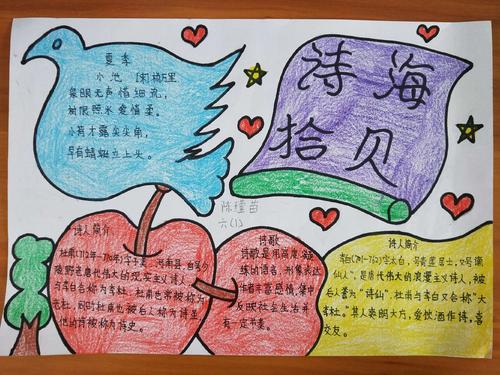 夏季
小池 [宋]杨万里
泉眼无声惜细流,
树阴照水爱晴柔。
小荷才露尖尖角,
早有蜻蜓立上头。
诗海
拾贝
陈瑾苗
六(1)
诗人简介
杜甫(712年—770年)字子美,
野老唐代伟大的现实主义诗人,
与李白合称为李杜。杜甫也常被称为
老杜。同时杜甫也被后人称为诗圣
他的诗被称为诗史。
诗歌
诗歌是用高度
练的语言,形象表达
作者丰富感情,集中
反映社会生活并
有一定节奏。
诗人简介
李白(701-762)字太白,号青莲居士,又号谪
仙人",是唐代伟大的浪漫主义诗人,被
后人誉为"诗仙",杜甫与李白又合称"大
李杜。"其人爽朗大方,爱饮酒作诗,喜
交友。